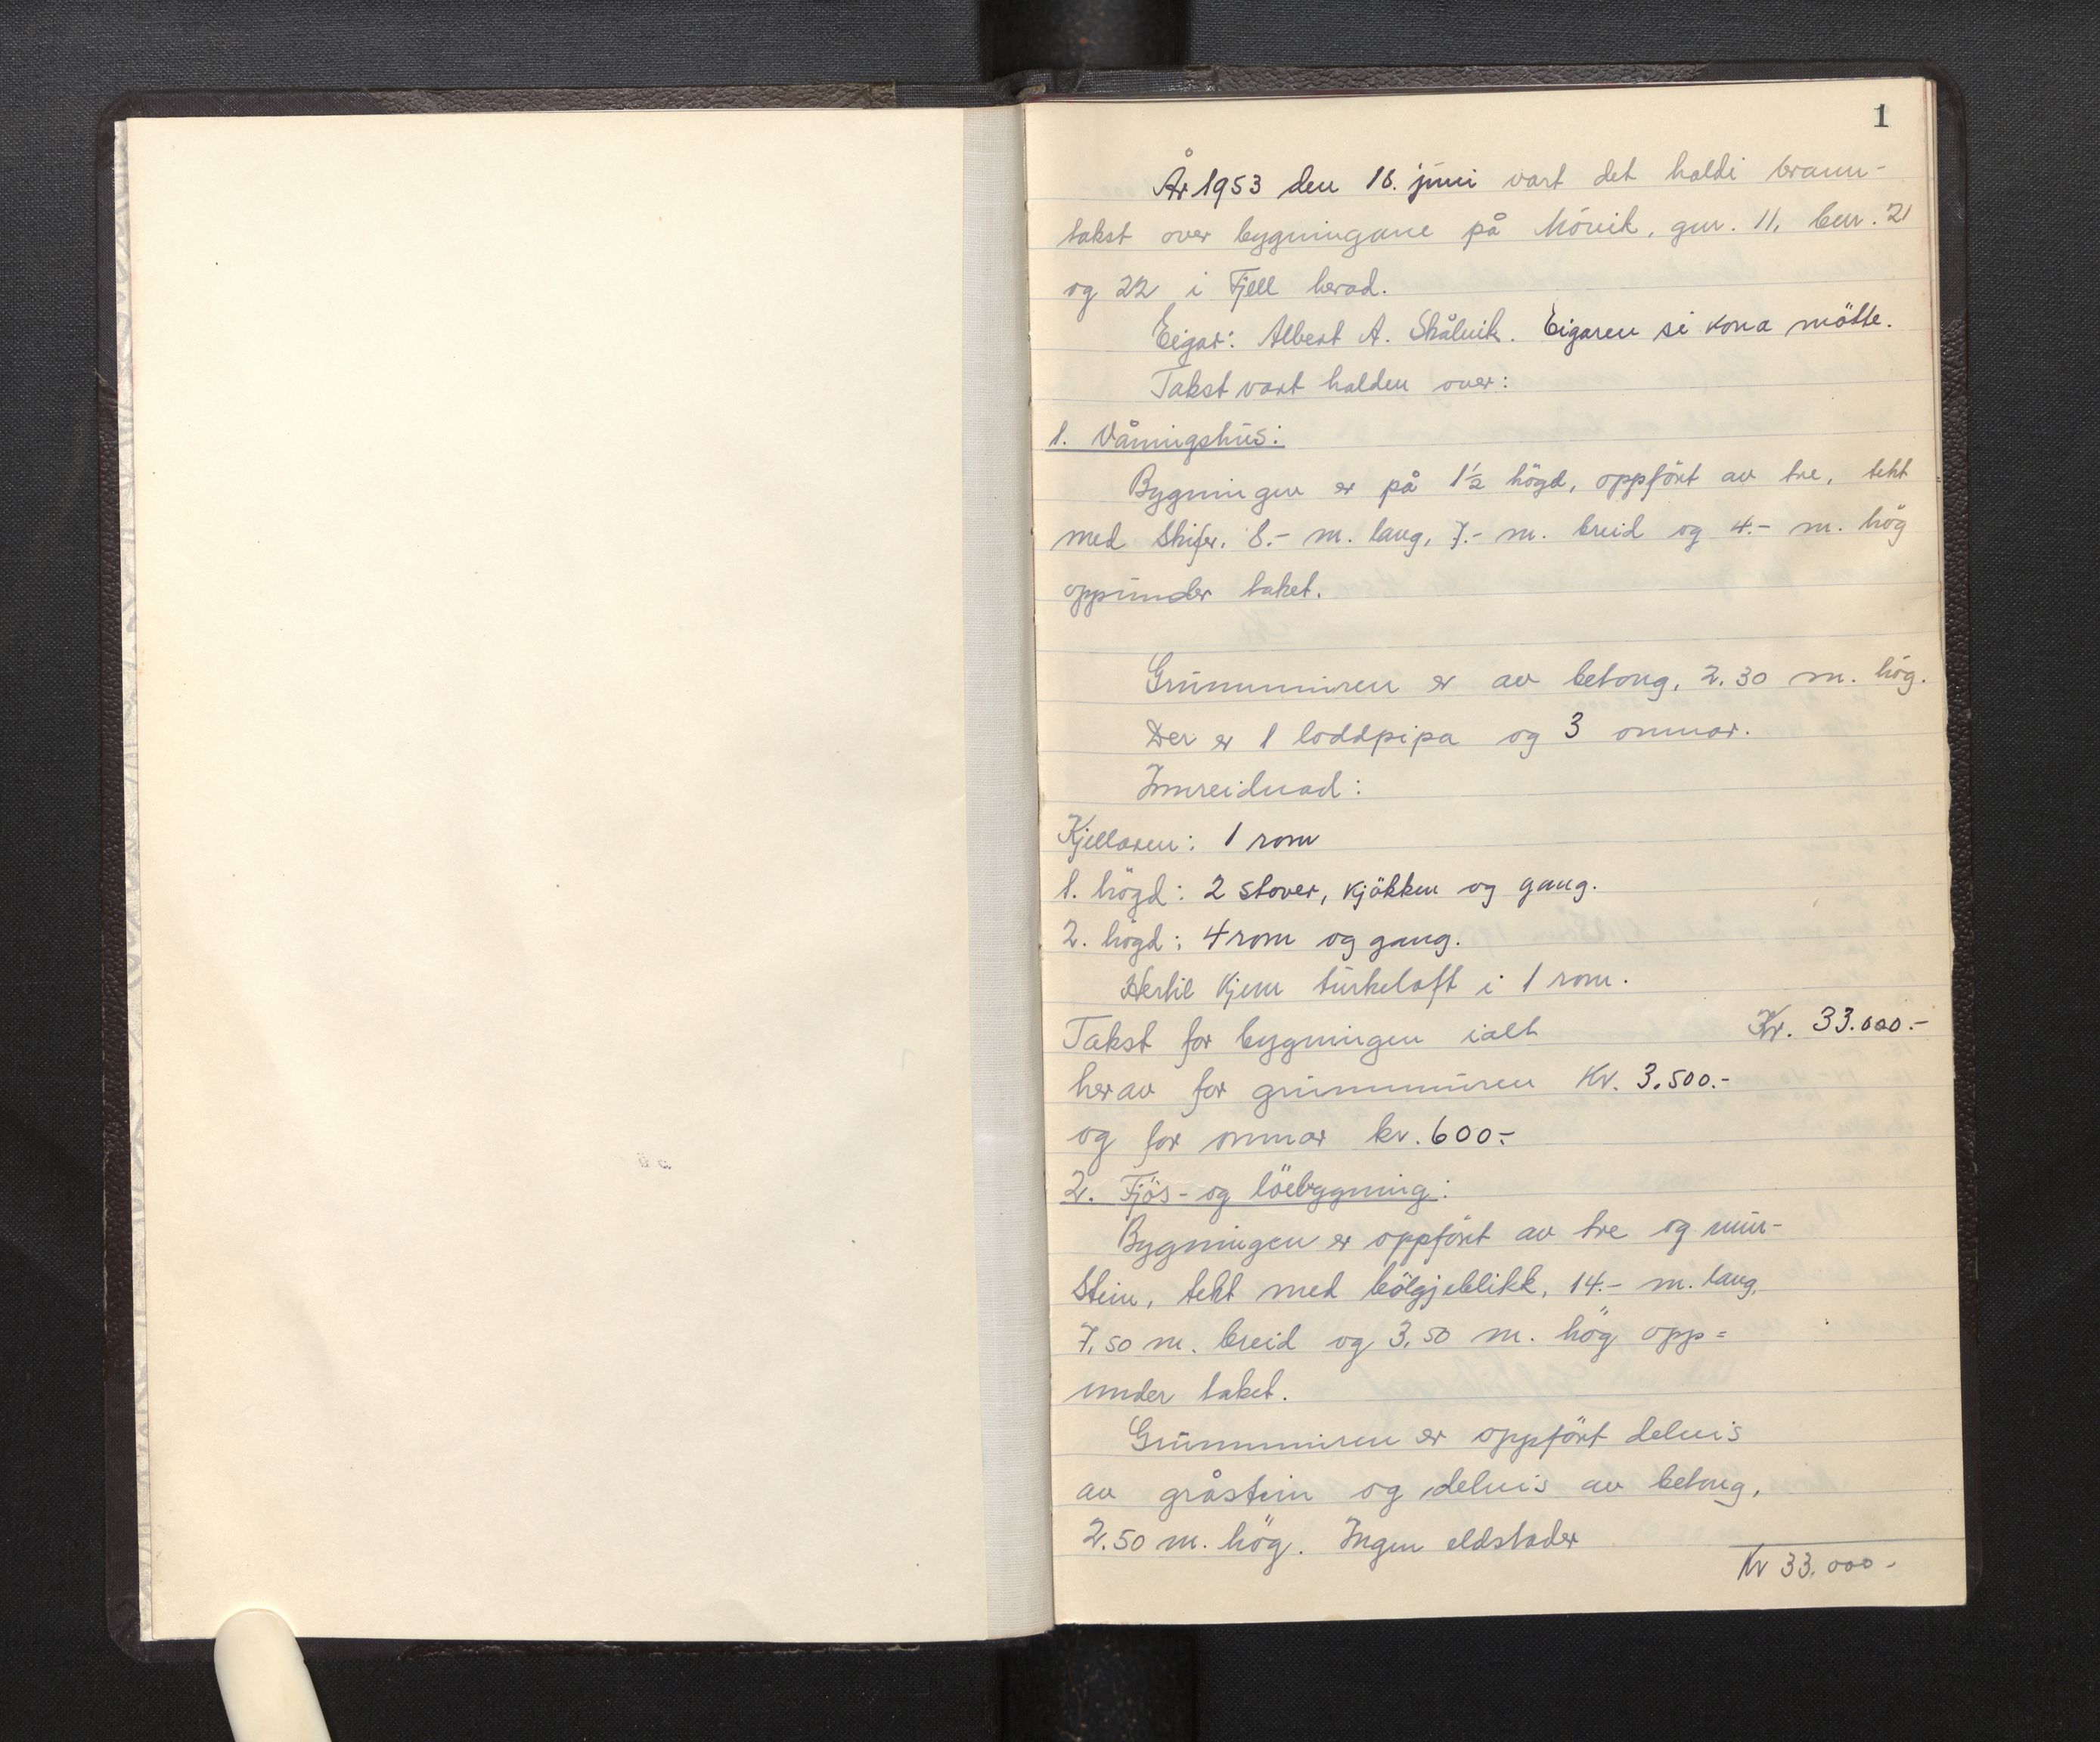 1
År 1953 den 16. juni vart det haldi brann-
takst over bygningane på Mövik, gnr. 11, bnr. 21
og 22 i Fjell herad.
Eigar: Albert A. Skålvik. Eigaren si kona mötte.
Takst vart halden over:
1. Våningshus:
Bygningen er på 1½ högd, oppfört av tre, tekt
med Skifer. 8.- m. lang, 7.- m. breid og 4.- m. hög
oppunder taket.
Grunnmuren er av betong, 2.30 m. hög.
Der er 1 loddpipa og 3 omnar.
Innreidnad:
Kjellaren: 1 rom
1. högd: 2 stover, kjökken og gang.
2. högd: 4 rom og gang.
Hertil kjem turkeloft i 1 rom.
Takst for bygningen ialt Kr. 33.000.-
herav for grunnmuren Kr. 3.500.-
og for omnar kr. 600.-
2. Fjös- og löebygning:
Bygningen er oppfört av tre og mur-
stein, tekt med bölgjeblikk, 14.- m. lang,
7,50 m. breid og 3,50 m. hög opp=
under taket.
Grunnmuren er oppfört delvis
av gråstein og delvis av betong,
2.50 m. hög. Ingen eldstader
Kr 33.000-